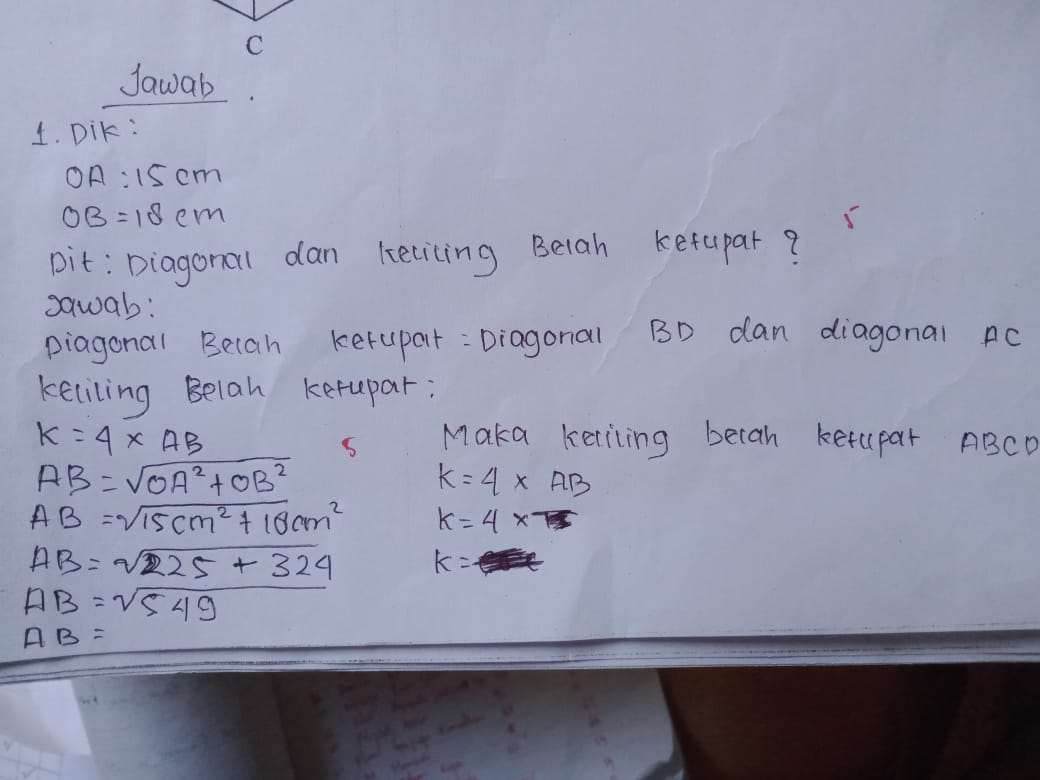 C
Jawab.
1. Dik :
OA : 15 cm
OB = 18 cm
Dit : Diagonal dan keliling Belah ketupat ?
5
Jawab :
Diagonal Belah ketupat = Diagonal BD dan diagonal AC
keliling Belah ketupat :
K = 4 × AB
5
AB = √OA² + OB²
AB = √15cm² + 18cm²
AB = √225 + 324
AB = √549
AB =
Maka keliling belah ketupat ABCD
K = 4 × AB
K = 4 ×
K =